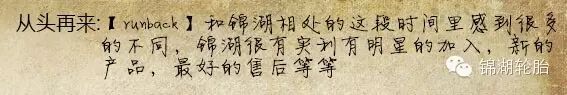 从头再来:【runback】和锦湖相处的这段时间里感到很多
的不同，锦湖很有实利有明星的加入，新的
产品，最好的售后等等
锦湖轮胎